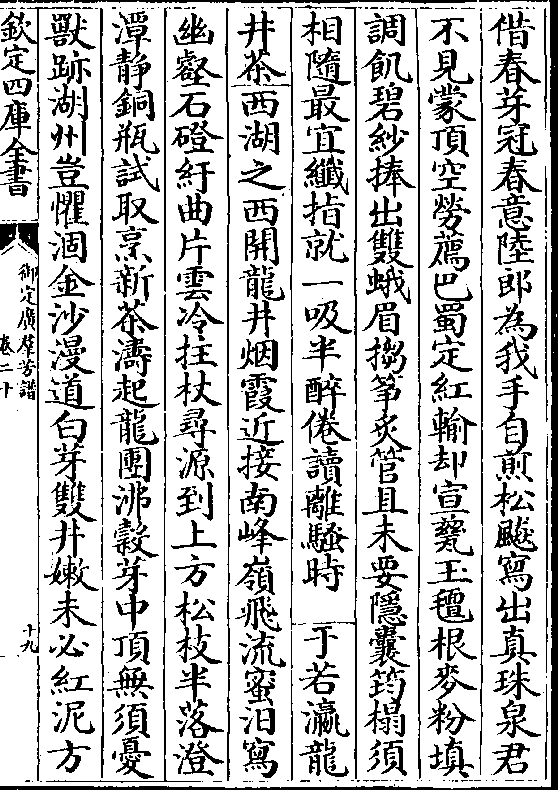 偕春芽冠春意陸郎為我手自煎松飈寫出真珠泉君
不見蒙頂空勞薦巴蜀定紅輸却宣甆玉毺根麥粉填
調飢碧紗捧出雙蛾眉搊筝炙管且未要隱囊筠榻須
相隨最宜纖指就一吸半醉倦讀離騷時　于若瀛龍
井茶西湖之西開龍井烟霞近接南峰嶺飛流蜜汨寫
幽壑石磴紆曲片雲冷拄杖尋源到上方松枝半落澄
潭靜銅瓶試取烹新茶濤起龍團沸穀芽中頂無須憂
獸跡湖州豈懼涸金沙漫道白芽雙井嫩未必紅泥方
欽定四庫全書
御定廣羣芳譜
卷二十
十九